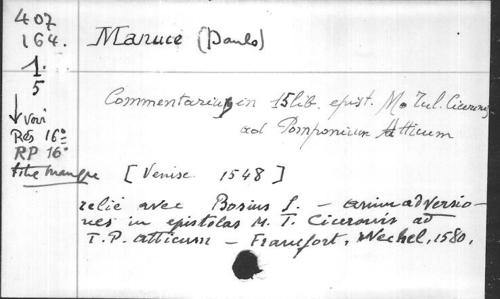 407
164.
1.
5
↓ voir
Rés 16°
RP 16°
titre manque
Manuce (Paulo)
Commentarius in 15 lib. epist. M. Tul. Ciceronis
ad Pomponium Atticum
[Venise 1548]
relié avec Bosius S. – animadversio-
nes in epistolas M. T. Ciceronis ad
T. P. atticum – Francfort, Wechel, 1580.